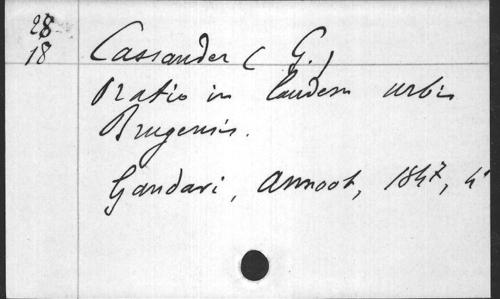 28
18
Cassander (G.)
Oratio in laudem urbis
Brugensis.
Gandavi, Annoot, 1847, 4°